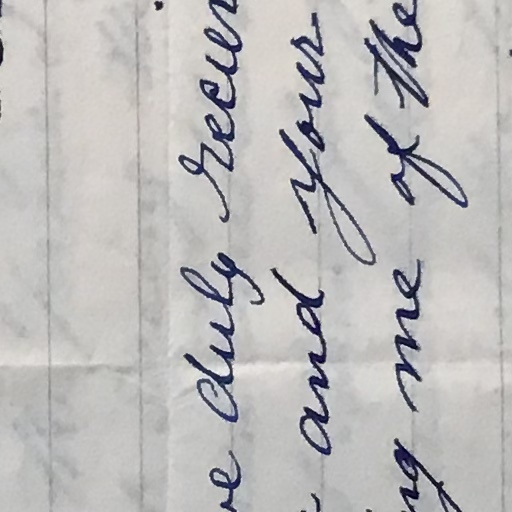 ve duly receiv
and your
ng me of the